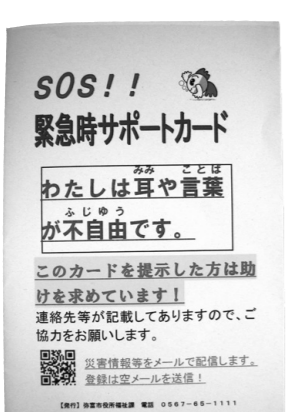 SOS!!
緊急時サポートカード
わたしは耳や言葉
みみ ことば
が不自由です。
ふじゆう
このカードを提示した方は助
けを求めています！
連絡先等が記載してありますので、ご
協力をお願いします。
災害情報等をメールで配信します。
登録は空メールを送信！
【発行】弥富市役所福祉課 電話 0567-65-1111